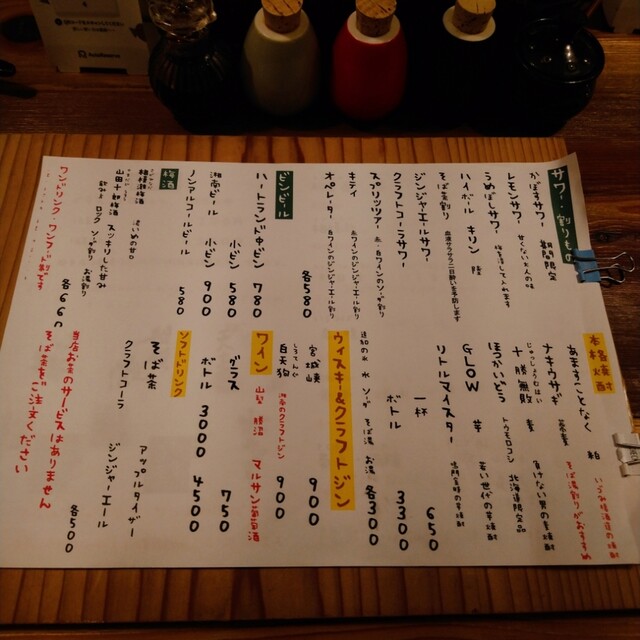 サワー・割りもの
かぼすサワー 期間限定
レモンサワー 甘くない大人の味
うめぼしサワー 梅を潰して入れます
ハイボール キリン 陸
そば茶割り 血液サラサラ二日酔いを予防します
ジンジャエールサワー
クラフトコーラサワー
スプリッツァー 赤・白ワインのソーダ割り
キティ 赤ワインのジンジャエール割り
オペレーター 白ワインのジンジャエール割り
各580
ビンビール
ハートランド中ビン 780
湘南ビール 小ビン 900
ノンアルコールビール 小ビン 580
580
梅酒
相模灘梅酒 濃いめの甘口
山田十郎梅酒 スッキリした甘み
ロック ソーダ割り お湯割り
各660
ワンドリンク ワンフード制です
本格焼酎
あまきことなく 粕
いづみ橋酒造の焼酎
ナキウサギ 蕎麦 そば湯割りがおすすめ
じゅっしょうむはい
十勝無敗 麦 負けない男の麦焼酎
ほっかいどう トウモロコシ 北海道限定品
GLOW 芋 若い世代の芋焼酎
リトルマイスター
一杯 650
ボトル 3300
水 ソーダ そば湯 お湯 各300
ウィスキー&クラフトジン
宮城峡 900
白天狗 湘南のクラフトジン 900
ワイン 山梨 勝沼 マルサン葡萄酒
グラス 750
ボトル 3000 4500
ソフトドリンク
そば茶 アップルタイザー
クラフトコーラ ジンジャーエール
各500
当店お茶のサービスはありません
そば茶をご注文ください